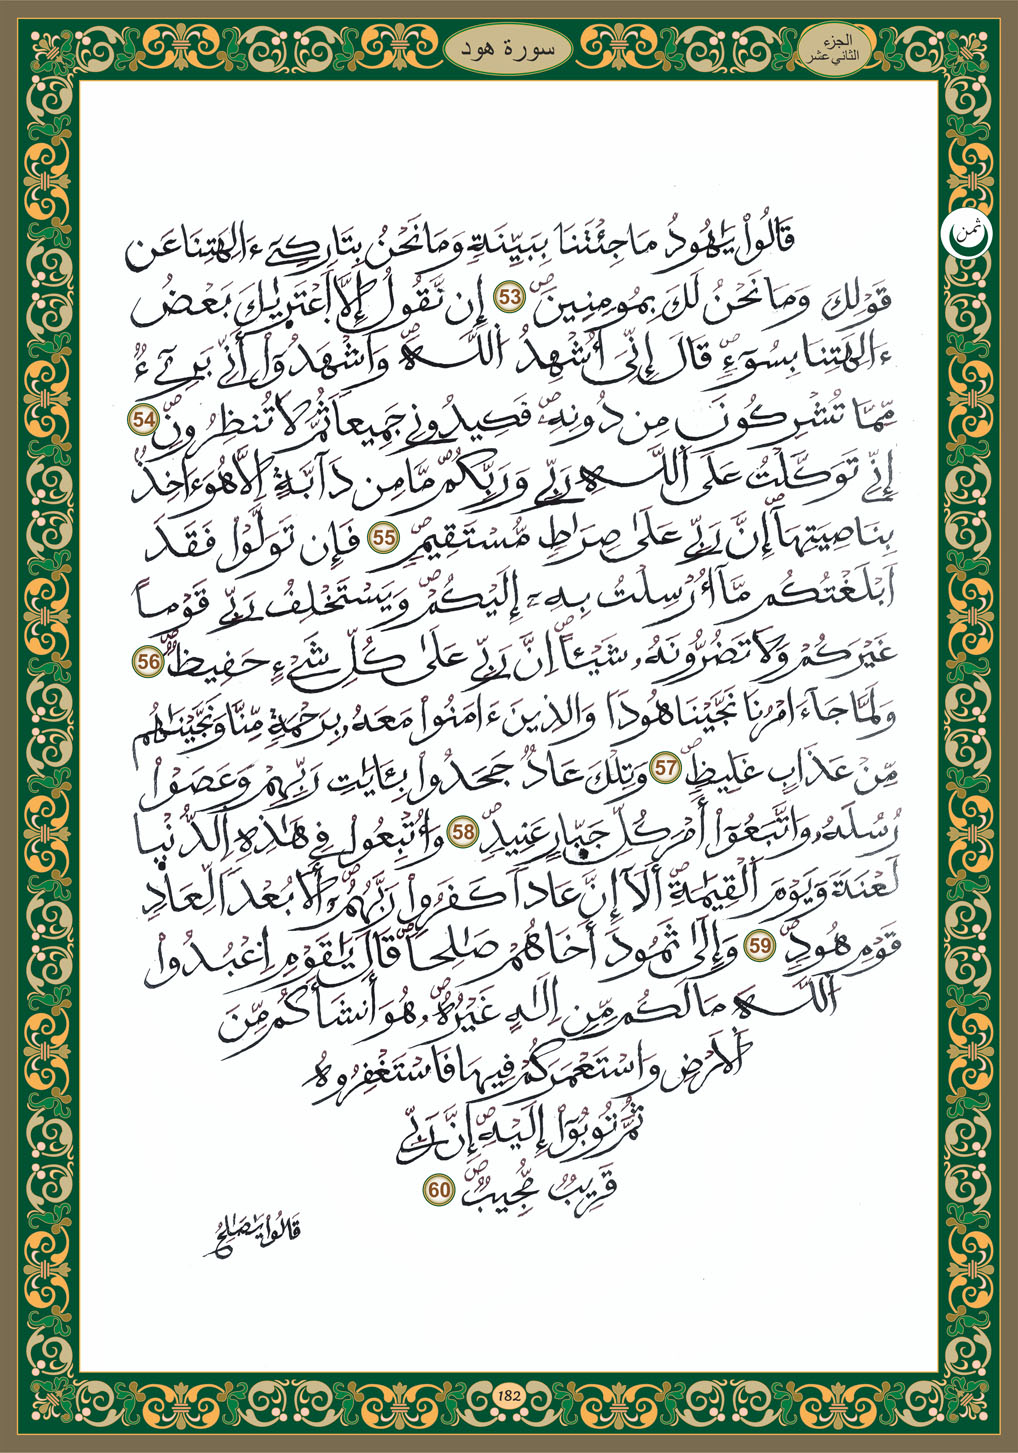 سورة هود
الجزء
الثاني عشر
ثمن
قَالُواْ يَٰهُودُ مَا جِئْتَنَا بِبَيِّنَةٖ وَمَا نَحْنُ بِتَارِكِےٓ ءَالِهَتِنَا عَن
قَوْلِكَ وَمَا نَحْنُ لَكَ بِمُومِنِينَۖ 53 إِن نَّقُولُ إِلَّا اَعْتَر۪يٰكَ بَعْضُ
ءَالِهَتِنَا بِسُوٓءٖۖ قَالَ إِنِّيَ أُشْهِدُ اُللَّهَۖ وَاشْهَدُوٓاْ أَنِّے بَرِےٓءٞ
مِّمَّا تُشْرِكُونَ مِن دُونِهِۦۖ فَكِيدُونِے جَمِيعاٗ ثُمَّ لَا تُنظِرُونِۖ 54
إِنِّے تَوَكَّلْتُ عَلَى اَللَّهِ رَبِّے وَرَبِّكُمۖ مَّا مِن دَآبَّةٍ إِلَّا هُوَ ءَاخِذُۢ
بِنَاصِيَتِهَآۖ إِنَّ رَبِّے عَلَىٰ صِرَٰطٖ مُّسْتَقِيمٖۖ 55 فَإِن تَوَلَّوْاْ فَقَدَ
اَبْلَغْتُكُم مَّآ أُرْسِلْتُ بِهِۦٓ إِلَيْكُمْۖ وَيَسْتَخْلِفُ رَبِّے قَوْماً
غَيْرَكُمْ وَلَا تَضُرُّونَهُۥ شَيْـٔاًۖ اِنَّ رَبِّے عَلَىٰ كُلِّ شَےْءٍ حَفِيظٞۖ 56
وَلَمَّا جَآءَ امْرُنَا نَجَّيْنَا هُوداٗ وَالذِينَ ءَامَنُواْ مَعَهُۥ بِرَحْمَةٖ مِّنَّا وَنَجَّيْنَٰهُم
مِّنْ عَذَابٍ غَلِيظٖۖ 57 وَتِلْكَ عَادٞ جَحَدُواْ بِـَٔايَٰتِ رَبِّهِمْ وَعَصَوْاْ
رُسُلَهُۥ وَاتَّبَعُوٓاْ أَمْرَ كُلِّ جَبّ۪ارٍ عَنِيدٖۖ 58 وَأُتْبِعُواْ فِے هَٰذِهِ اِلدُّنْي۪ا
لَعْنَةٗ وَيَوْمَ اَلْقِيَٰمَةِۖ أَلَآ إِنَّ عَاداٗ كَفَرُواْ رَبَّهُمُۥٓۖ أَلَا بُعْداٗ لِّعَادٖ
قَوْمِ هُودٖۖ 59 وَإِلَىٰ ثَمُودَ أَخَاهُمْ صَٰلِحاٗۖ قَالَ يَٰقَوْمِ اِعْبُدُواْ
اُللَّهَ مَا لَكُم مِّنِ اِلَٰهٍ غَيْرُهُۥۖ هُوَ أَنشَأَكُم مِّنَ
اَلَارْضِ وَاسْتَعْمَرَكُمْ فِيهَا فَاسْتَغْفِرُوهُ
ثُمَّ تُوبُوٓاْ إِلَيْهِۖ إِنَّ رَبِّے
قَرِيبٞ مُّجِيبٞۖ 60
قَالُواْ يَٰصَٰلِحُ
182